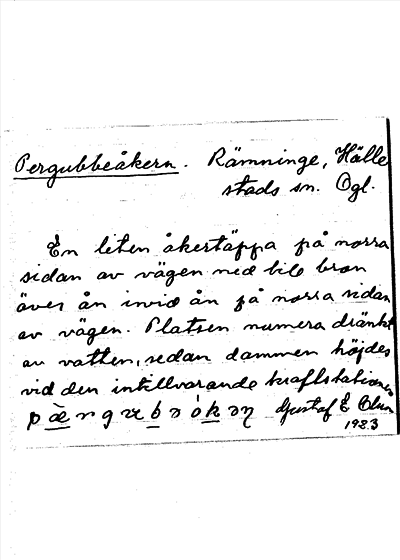 Pergubbeåkern. Rämninge, Hälle
stads sn. Ögl.
En liten åkertäppa på norra
sidan av vägen ned till bron
över ån invid ån på norra sidan
av vägen. Platsen numera dränkt
av vatten, sedan dammen höjdes
vid den intillvarande kraftstationen
Gustaf E Blum
1923